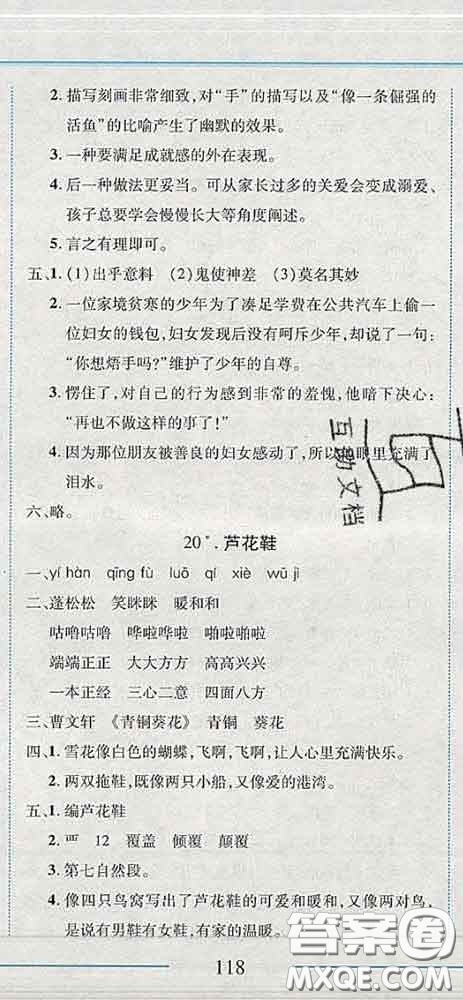 2. 描写刻画非常细致,对“手”的描写以及“像一条倔强的
活鱼”的比喻产生了幽默的效果。
3. 一种要满足成就感的外在表现。
4. 后一种做法更妥当。可从家长过多的关爱会变成溺爱、
孩子总要学会慢慢长大等角度阐述。
5. 言之有理即可。
五、1. (1)出乎意料 (2)鬼使神差 (3)莫名其妙
2. 一位家境贫寒的少年为了凑足学费在公共汽车上偷一
位妇女的钱包,妇女发现后没有呵斥少年,却说了一句:
“你想焐手吗?”维护了少年的自尊。
3. 愣住了,对自己的行为感到非常的羞愧,他暗下决心:
“再也不做这样的事了!”
4. 因为那位朋友被善良的妇女感动了,所以眼里充满了
泪水。
六、略。
20*. 芦花鞋
一、yí hàn qīng fù luō qí xiè wū jì
二、蓬松松 笑眯眯 暖和和
咕噜咕噜 哗啦哗啦 啪啦啪啦
端端正正 大大方方 高高兴兴
一本正经 三心二意 四面八方
三、曹文轩 《青铜葵花》 青铜 葵花
四、1. 雪花像白色的蝴蝶,飞啊,飞啊,让人心里充满快乐。
2. 两双拖鞋,既像两只小船,又像爱的港湾。
五、1. 编芦花鞋
2. 覀 12 覆盖 倾覆 颠覆
3. 第七自然段。
4. 像四只鸟窝写出了芦花鞋的可爱和暖和,又像两对鸟,
是说有男鞋有女鞋,有家的温暖。
118
互助文档
答案圈
MXQE.COM